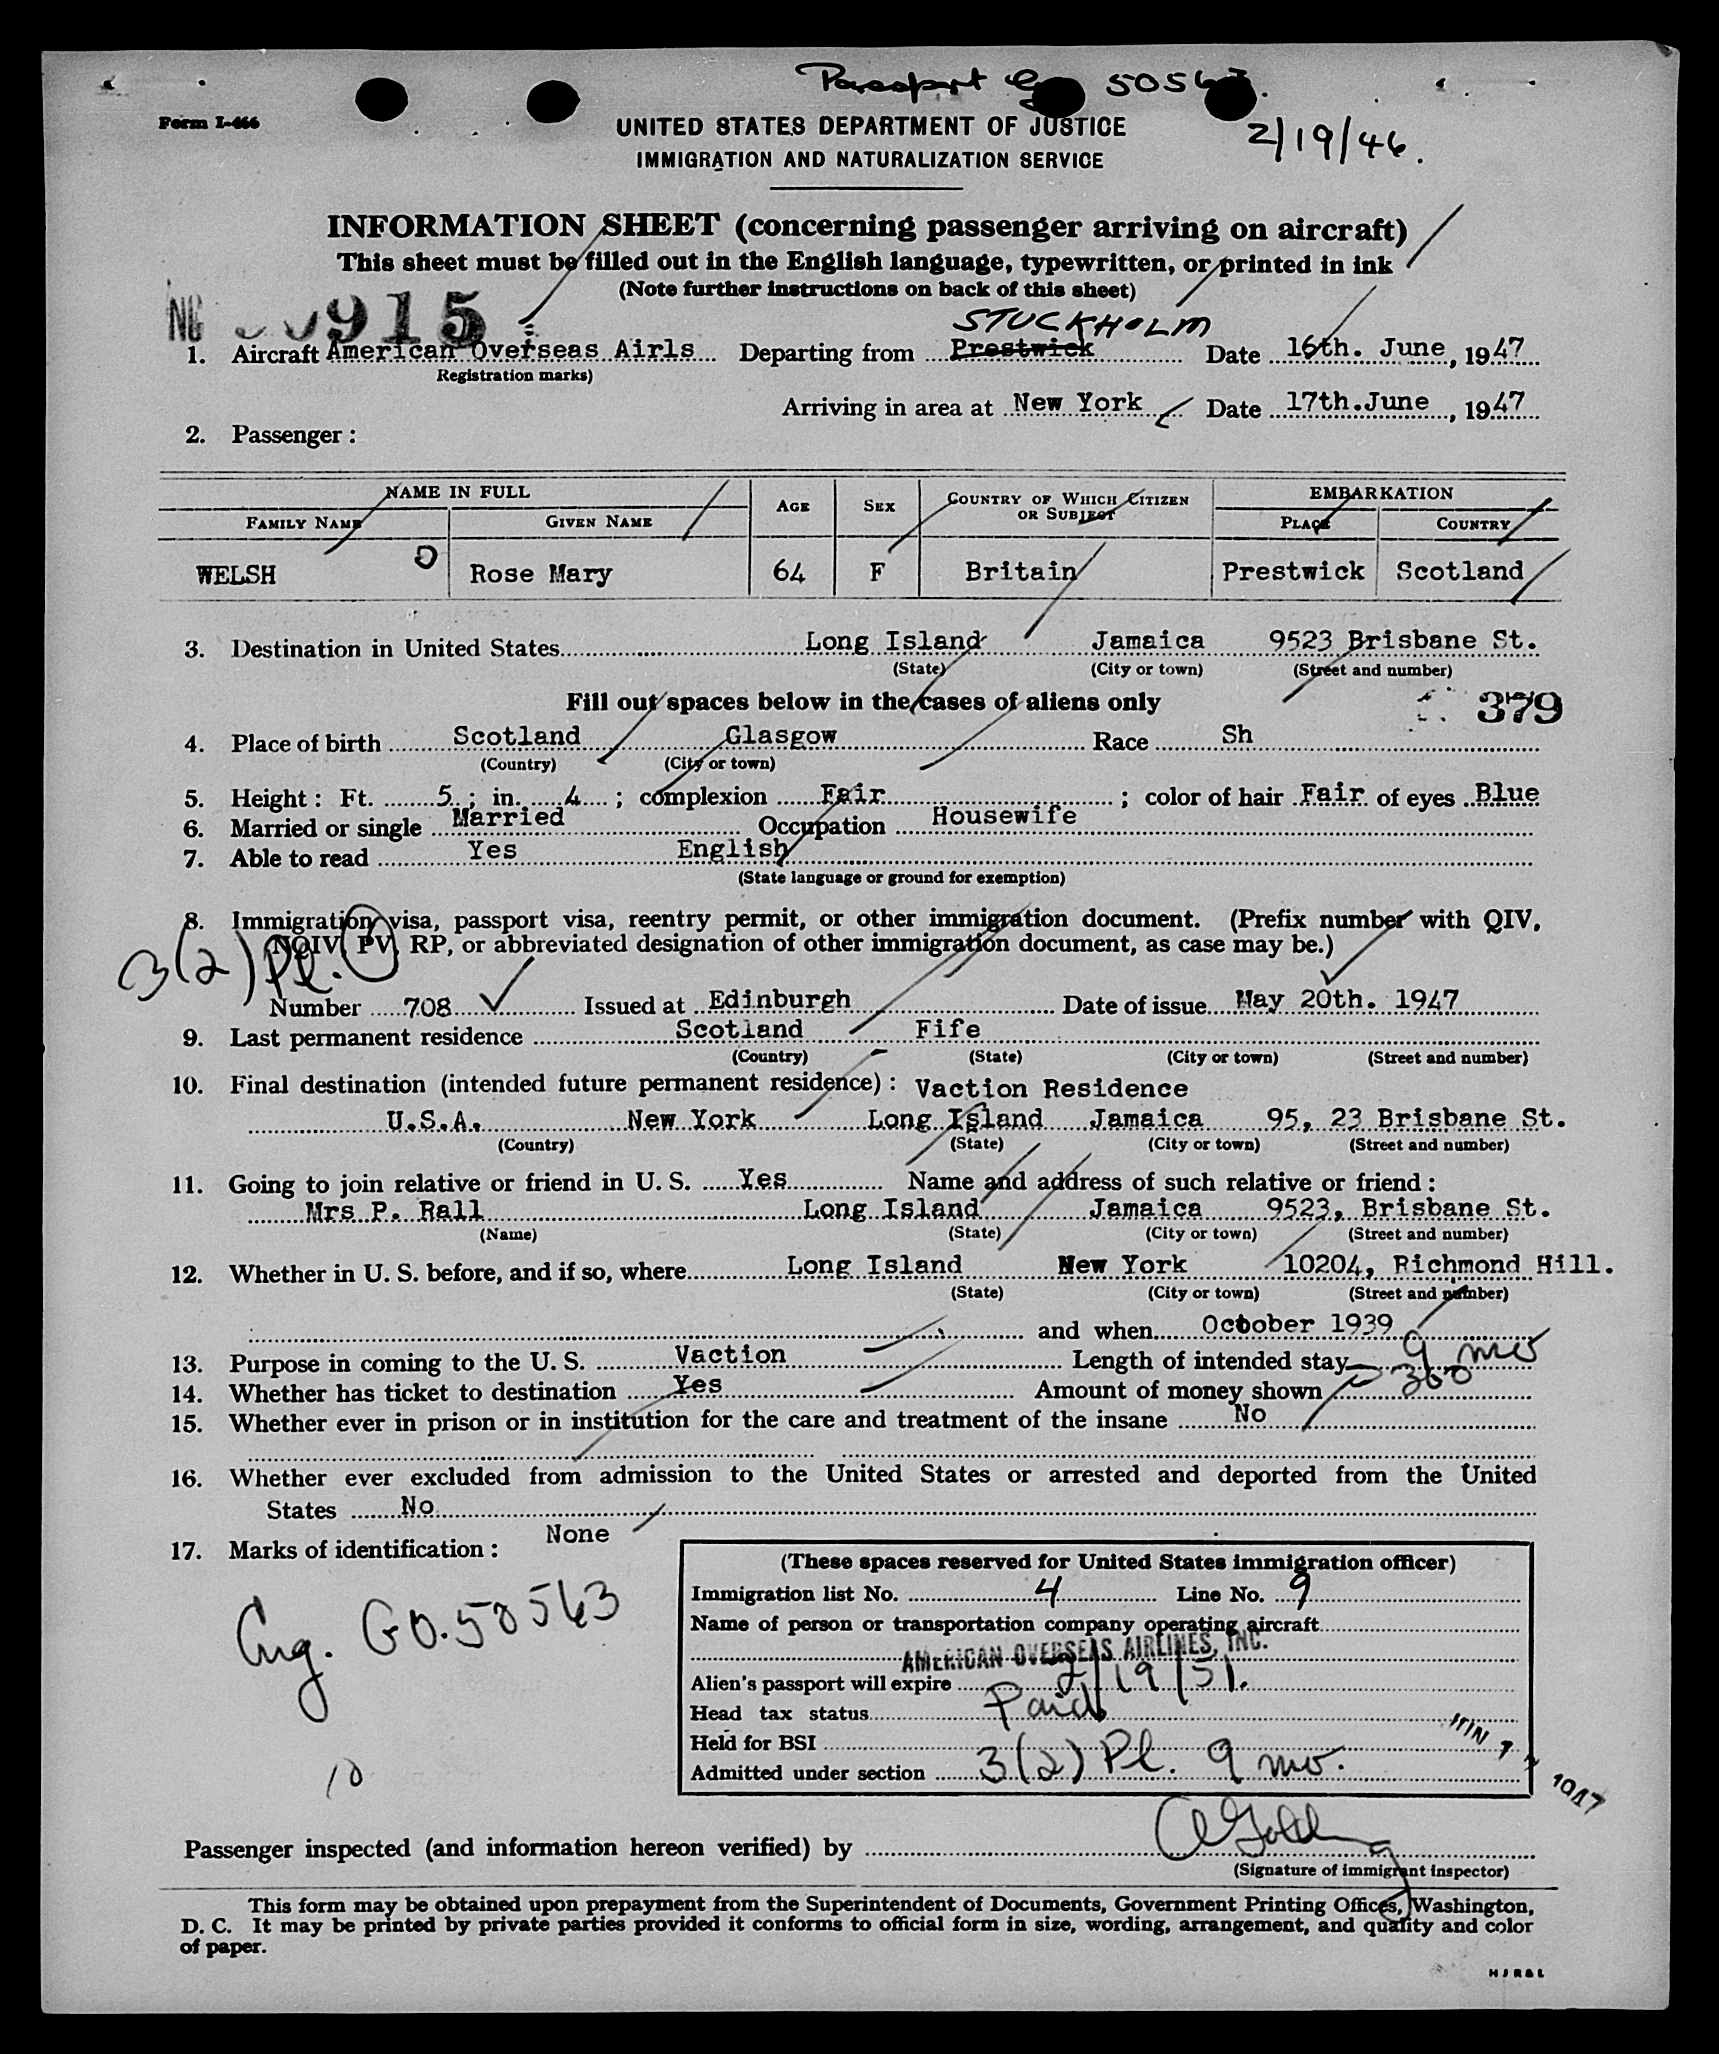 Passport 5056
Form I-466
UNITED STATES DEPARTMENT OF JUSTICE
2/19/46.
IMMIGRATION AND NATURALIZATION SERVICE
INFORMATION SHEET (concerning passenger arriving on aircraft)
This sheet must be filled out in the English language, typewritten, or printed in ink
(Note further instructions on back of this sheet)
915
STOCKHOLM
1. Aircraft American Overseas Airls Departing from Prestwick Date 16th. June, 1947
Registration marks)
Arriving in area at New York Date 17th.June, 1947
2. Passenger :
NAME IN FULL AGE SEX COUNTRY OF WHICH CITIZEN OR SUBJECT EMBARKATION
FAMILY NAME GIVEN NAME PLACE COUNTRY
WELSH Rose Mary 64 F Britain Prestwick Scotland
3. Destination in United States Long Island Jamaica 9523 Brisbane St.
(State) (City or town) (Street and number)
Fill out spaces below in the cases of aliens only
379
4. Place of birth Scotland Glasgow Race Sh
(Country) (City or town)
5. Height : Ft. 5 ; in. 4 ; complexion Fair ; color of hair Fair of eyes Blue
6. Married or single Married Occupation Housewife
7. Able to read Yes English
(State language or ground for exemption)
8. Immigration visa, passport visa, reentry permit, or other immigration document. (Prefix number with QIV,
NQIV, PV, RP, or abbreviated designation of other immigration document, as case may be.)
3(2) Pl.
Number 708 Issued at Edinburgh Date of issue May 20th. 1947
9. Last permanent residence Scotland Fife
(Country) (State) (City or town) (Street and number)
10. Final destination (intended future permanent residence) : Vaction Residence
U.S.A. New York Long Island Jamaica 95, 23 Brisbane St.
(Country) (State) (City or town) (Street and number)
11. Going to join relative or friend in U. S. Yes Name and address of such relative or friend :
Mrs P. Rall Long Island Jamaica 9523, Brisbane St.
(Name) (State) (City or town) (Street and number)
12. Whether in U. S. before, and if so, where Long Island New York 10204, Richmond Hill.
(State) (City or town) (Street and number)
and when October 1939
13. Purpose in coming to the U. S. Vaction Length of intended stay 9 mo
14. Whether has ticket to destination Yes Amount of money shown 360
15. Whether ever in prison or in institution for the care and treatment of the insane No
16. Whether ever excluded from admission to the United States or arrested and deported from the United
States No
17. Marks of identification : None
(These spaces reserved for United States immigration officer)
Immigration list No. 4 Line No. 9
Name of person or transportation company operating aircraft
AMERICAN OVERSEAS AIRLINES, INC.
GO. 50563
Alien's passport will expire 2/19/51.
Head tax status Paid
Held for BSI
Admitted under section 3(2) Pl. 9 mo.
1947
10
Passenger inspected (and information hereon verified) by
(Signature of immigrant inspector)
This form may be obtained upon prepayment from the Superintendent of Documents, Government Printing Offices, Washington,
D. C. It may be printed by private parties provided it conforms to official form in size, wording, arrangement, and quality and color
of paper.
H J R & L